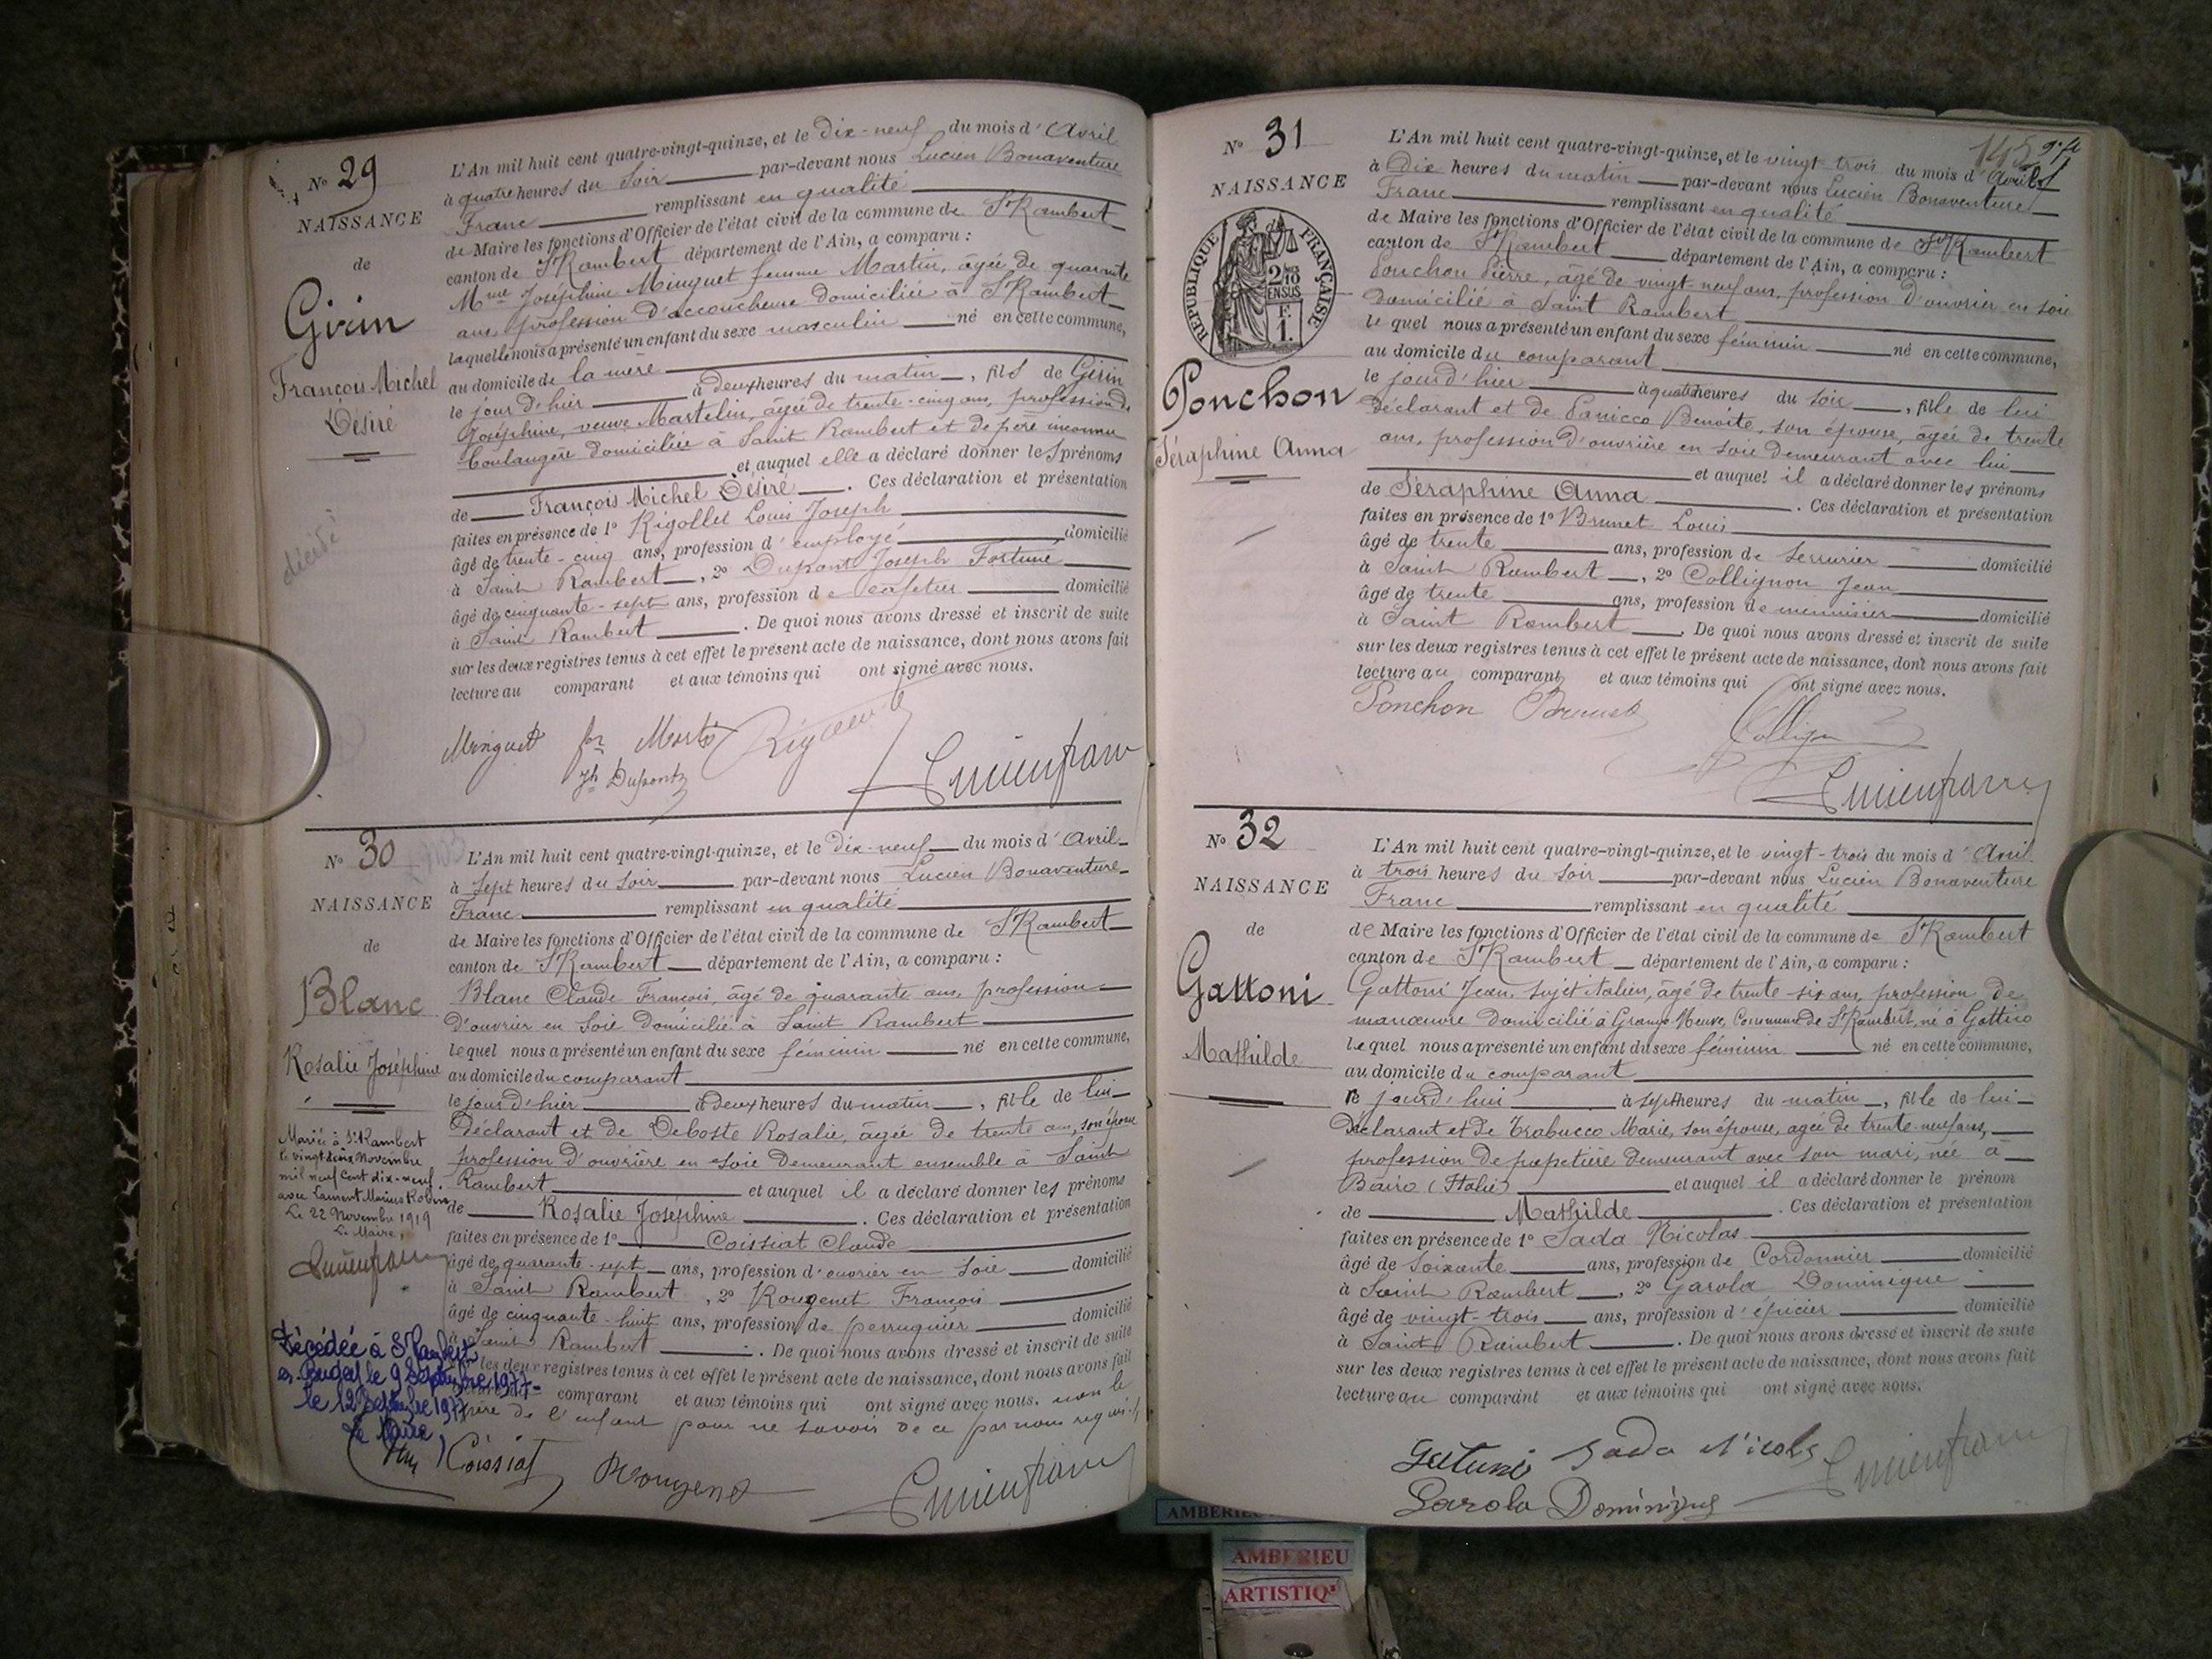 No 29
NAISSANCE
de
Girin
François Michel
Désiré
décédé
L'An mil huit cent quatre-vingt-quinze, et le dix-neuf du mois d'Avril
à quatre heures du soir par-devant nous Lucien Bonaventure
Franc remplissant en qualité
de Maire les fonctions d'Officier de l'état civil de la commune de St Rambert
canton de St Rambert département de l'Ain, a comparu :
Mme Joséphine Minguet femme Martin, âgée de quarante
ans, profession d'accoucheuse domiciliée à St Rambert
laquelle nous a présenté un enfant du sexe masculin né en cette commune,
au domicile de la mère
le jour d'hier à deux heures du matin, fils de Girin
Joséphine, veuve Martelin, âgée de trente-cinq ans, profession de
boulangère domiciliée à Saint Rambert et de père inconnu
et auquel elle a déclaré donner les prénoms
de François Michel Désiré. Ces déclaration et présentation
faites en présence de 1o Rigollet Louis Joseph
âgé de trente-cinq ans, profession d'employé domicilié
à Saint Rambert, 2o Dupont Joseph Fortuné
âgé de cinquante-sept ans, profession de cafetier domicilié
à Saint Rambert. De quoi nous avons dressé et inscrit de suite
sur les deux registres tenus à cet effet le présent acte de naissance, dont nous avons fait
lecture au comparant et aux témoins qui ont signé avec nous.
Minguet
Jh Dupont
Lucien franc
No 30
NAISSANCE
de
Blanc
Rosalie Joséphine
Mariée à St Rambert
le vingt deux Novembre
mil neuf cent dix-neuf
avec Laurent Marius
Le 22 Novembre 1919
Le Maire,
Lucien franc
Décédée à St Rambert
en Bugey le 9 Septembre 1977
le 12 Septembre 1977
Le Maire,
L'An mil huit cent quatre-vingt-quinze, et le dix-neuf du mois d'Avril
à sept heures du soir par-devant nous Lucien Bonaventure
Franc remplissant en qualité
de Maire les fonctions d'Officier de l'état civil de la commune de St Rambert
canton de St Rambert département de l'Ain, a comparu :
Blanc Claude François, âgé de quarante ans, profession
d'ouvrier en soie domicilié à Saint Rambert
lequel nous a présenté un enfant du sexe féminin né en cette commune,
au domicile du comparant
le jour d'hier à deux heures du matin, fille de lui
déclarant et de Deboste Rosalie, âgée de trente ans, son épouse
profession d'ouvrière en soie demeurant ensemble à Saint
Rambert et auquel il a déclaré donner les prénoms
de Rosalie Joséphine. Ces déclaration et présentation
faites en présence de 1o Coissiat Claude
âgé de quarante-sept ans, profession d'ouvrier en soie domicilié
à Saint Rambert, 2o Rougenet François
âgé de cinquante-huit ans, profession de perruquier domicilié
à Saint Rambert. De quoi nous avons dressé et inscrit de suite
les deux registres tenus à cet effet le présent acte de naissance, dont nous avons fait
comparant et aux témoins qui ont signé avec nous. non le
père de l'enfant pour ne savoir de ce par nous requis
Coissiat
Rougenet
Lucien franc
145
No 31
NAISSANCE
de
RÉPUBLIQUE FRANÇAISE
2/10 EN SUS
F.
1.
Ponchon
Séraphine Anna
L'An mil huit cent quatre-vingt-quinze, et le vingt trois du mois d'Avril
à Dix heures du matin par-devant nous Lucien Bonaventure
Franc remplissant en qualité
de Maire les fonctions d'Officier de l'état civil de la commune de St Rambert
canton de St Rambert département de l'Ain, a comparu :
Ponchon Pierre, âgé de vingt neuf ans, profession d'ouvrier en soie
domicilié à Saint Rambert
lequel nous a présenté un enfant du sexe féminin né en cette commune,
au domicile du comparant
le jour d'hier à quatre heures du soir, fille de lui
déclarant et de Panicco Benoîte, son épouse, âgée de trente
ans, profession d'ouvrière en soie demeurant avec lui
et auquel il a déclaré donner les prénoms
de Séraphine Anna. Ces déclaration et présentation
faites en présence de 1o Brunet Louis
âgé de trente ans, profession de serrurier domicilié
à Saint Rambert, 2o Collignon Jean
âgé de trente ans, profession de menuisier domicilié
à Saint Rambert. De quoi nous avons dressé et inscrit de suite
sur les deux registres tenus à cet effet le présent acte de naissance, dont nous avons fait
lecture au comparant et aux témoins qui ont signé avec nous.
Ponchon Brunet
Lucien franc
No 32
NAISSANCE
de
Gattoni
Mathilde
L'An mil huit cent quatre-vingt-quinze, et le vingt-trois du mois d'Avril
à trois heures du soir par-devant nous Lucien Bonaventure
Franc remplissant en qualité
de Maire les fonctions d'Officier de l'état civil de la commune de St Rambert
canton de St Rambert département de l'Ain, a comparu :
Gattoni Jean, sujet italien, âgé de trente-six ans, profession de
manœuvre domicilié à Grange Neuve, Commune de St Rambert, né à Gattico
lequel nous a présenté un enfant du sexe féminin né en cette commune,
au domicile du comparant
ce jourd'hui à sept heures du matin, fille de lui
déclarant et de Trabucco Marie, son épouse, âgée de trente-neuf ans,
profession de papetière demeurant avec son mari, née à
Bairo (Italie) et auquel il a déclaré donner le prénom
de Mathilde. Ces déclaration et présentation
faites en présence de 1o Sada Nicolas
âgé de soixante ans, profession de Cordonnier domicilié
à Saint Rambert, 2o Garola Dominique
âgé de vingt-trois ans, profession d'épicier domicilié
à Saint Rambert. De quoi nous avons dressé et inscrit de suite
sur les deux registres tenus à cet effet le présent acte de naissance, dont nous avons fait
lecture au comparant et aux témoins qui ont signé avec nous.
Sada Nicola
Garola Dominique
Lucien franc
AMBERIEU
AMBERIEU
ARTISTIQ